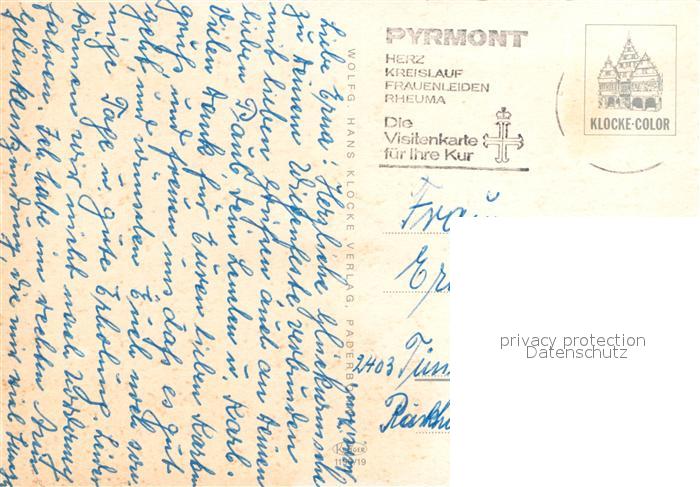 Liebe Erna! Herzliche Glückwünsche
zu Deinem Wiegenfeste verbunden
mit lieben Grüßen auch an Deinen
lieben
Vielen Dank für Euren lieben Karten
gruß und freuen uns daß es gut
geht und wünschen Euch noch son
nige Tage u. gute Erholung. Leider
können wir nicht nach
fahren. Ich habe im rechten Arm
Gelenkentzündung, die mir viel
WOLFG. HANS KLOCKE VERLAG, PADERB
KRÜGER
PYRMONT
HERZ
KREISLAUF
FRAUENLEIDEN
RHEUMA
Die
Visitenkarte
für Ihre Kur
KLOCKE-COLOR
Frau
2403
privacy protection
Datenschutz